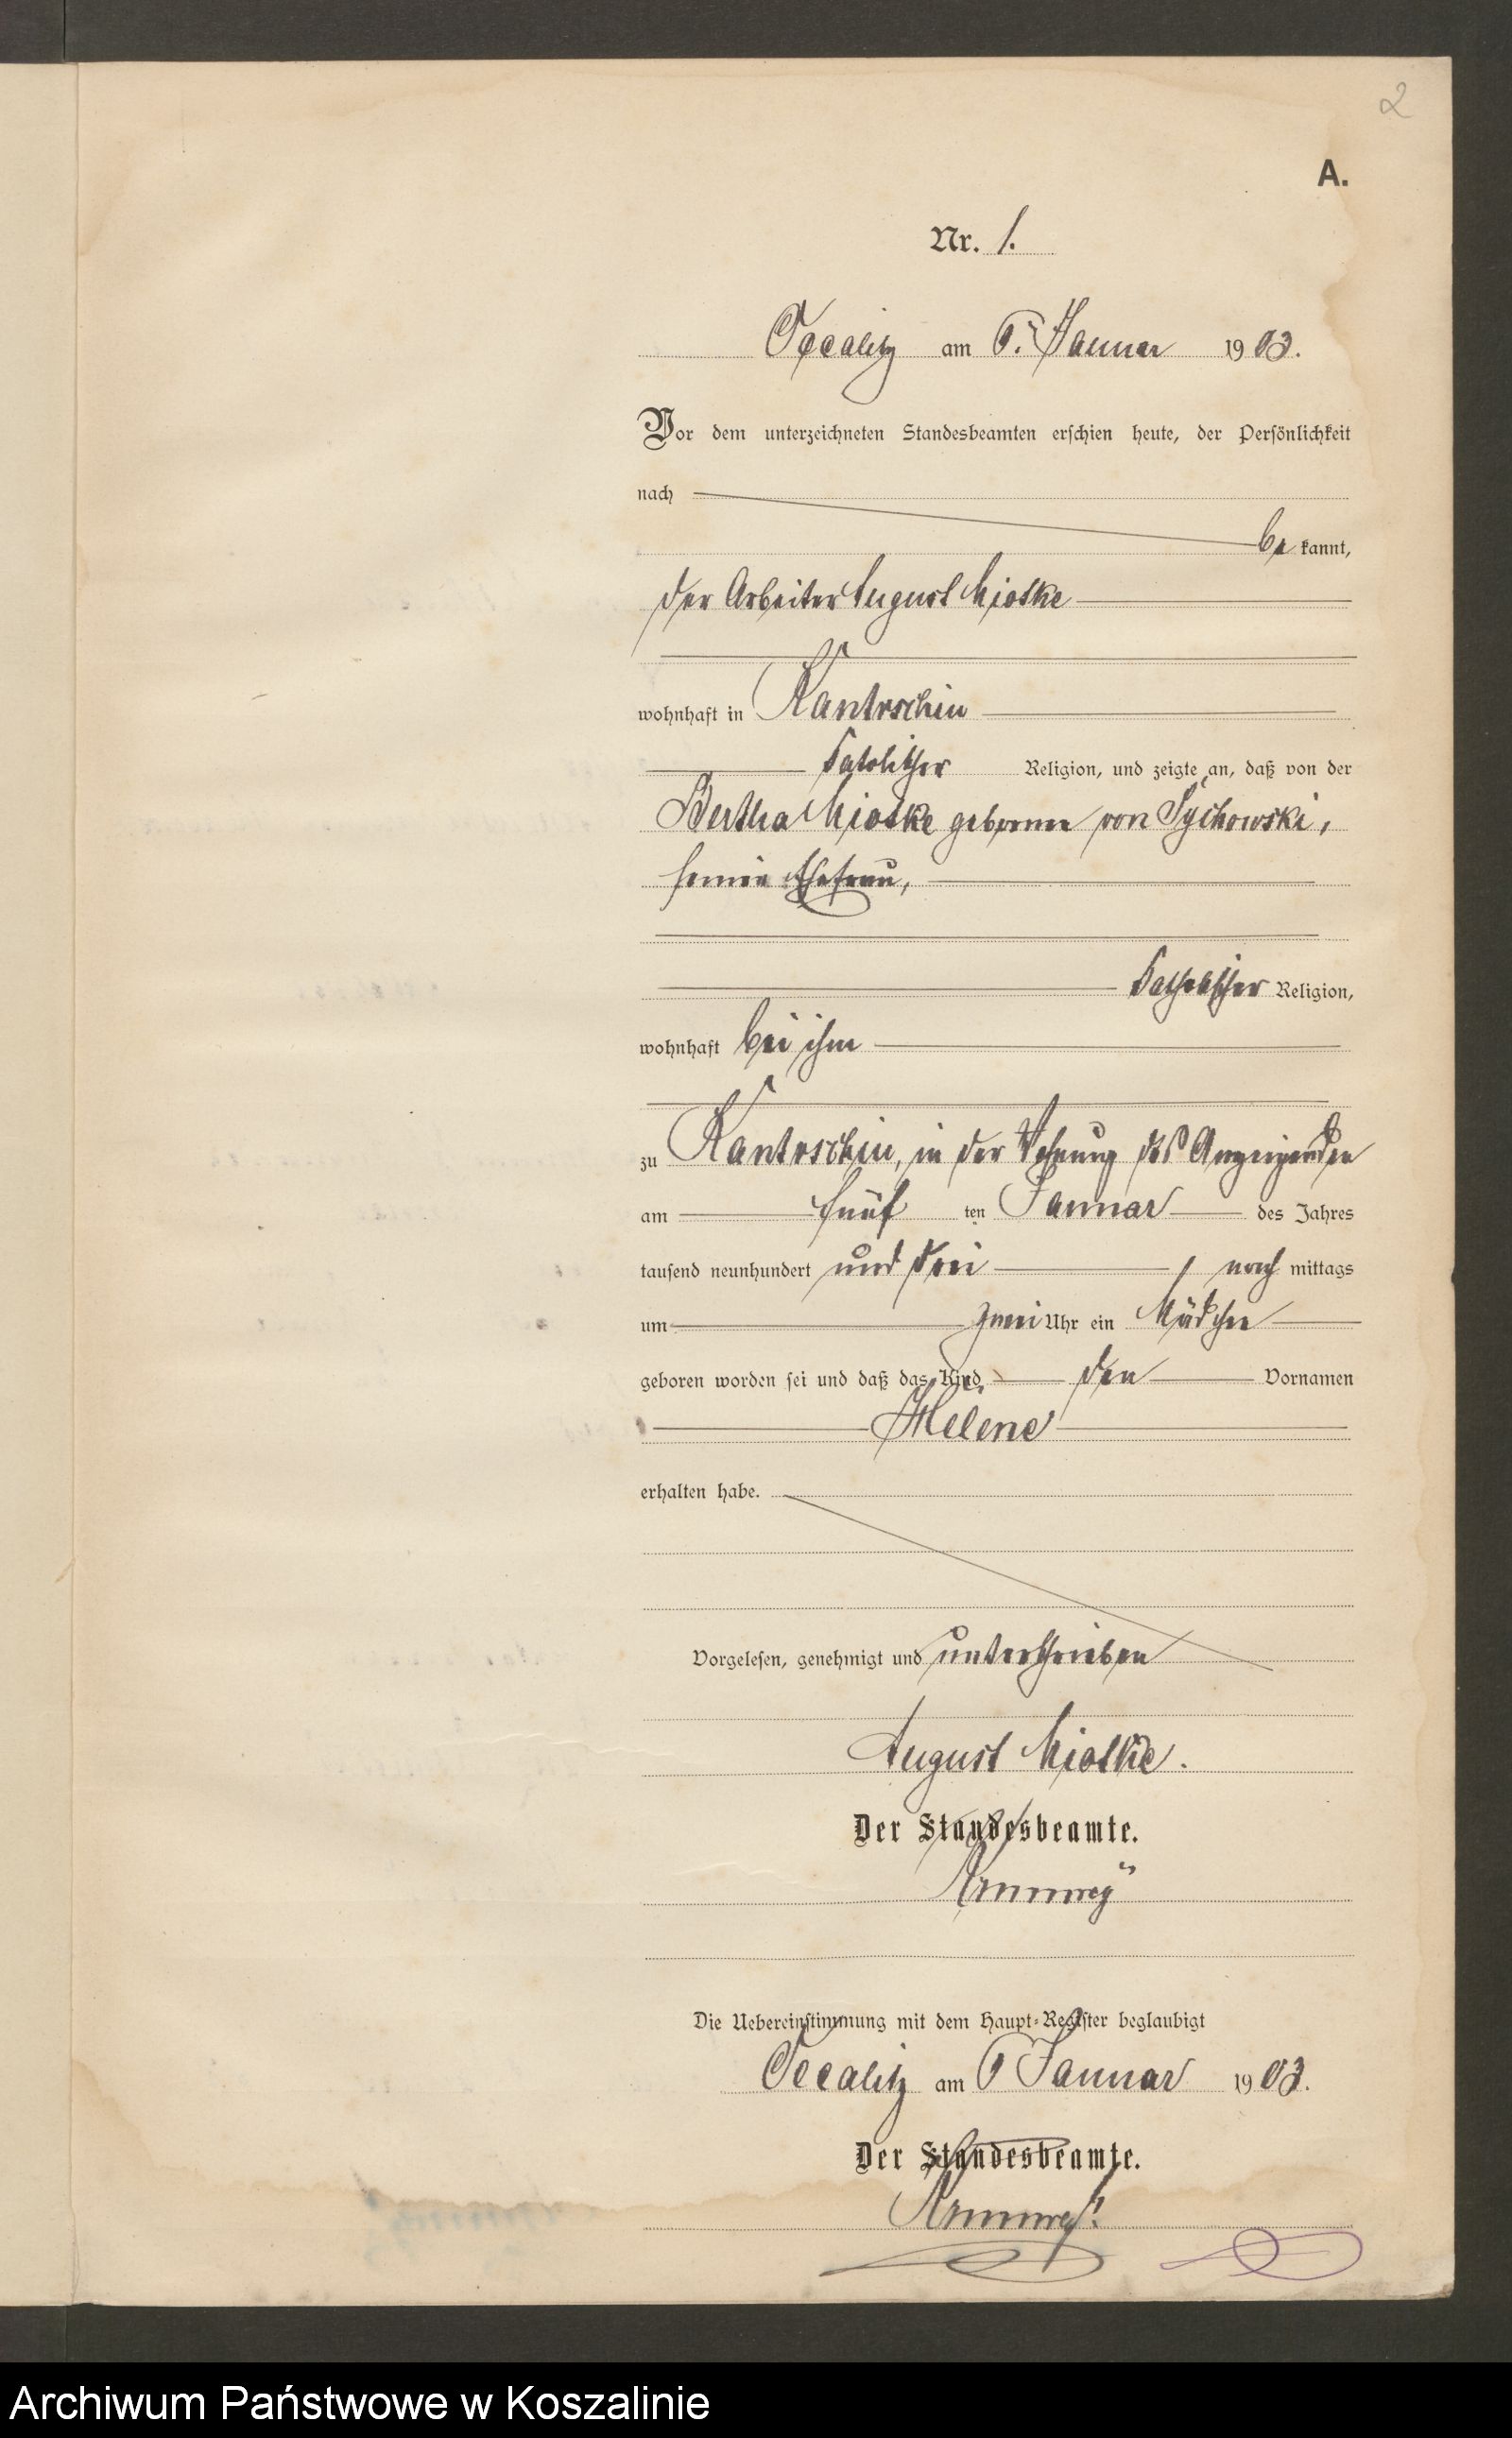 2
A.
Nr. 1.
Occalitz am 6. Januar 1903.
Vor dem unterzeichneten Standesbeamten erschien heute, der Persönlichkeit
nach
be kannt,
der Arbeiter August Miotke
wohnhaft in Kantrschin
Katolischer Religion, und zeigte an, daß von der
Bertha Miotke geborene von Sychowski,
seiner Ehefrau,
Katholischer Religion,
wohnhaft bei ihm
zu Kantrschin, in der Wohnung des Anzeigenden
am fünf ten Januar des Jahres
tausend neunhundert und drei, nach mittags
um zwei Uhr ein Mädchen
geboren worden sei und daß das Kind den Vornamen
Helene
erhalten habe.
Vorgelesen, genehmigt und unterschrieben
August Miotke.
Der Standesbeamte.
Die Uebereinstimmung mit dem Haupt-Register beglaubigt
Occalitz am 6 Januar 1903.
Der Standesbeamte.
Archiwum Państwowe w Koszalinie